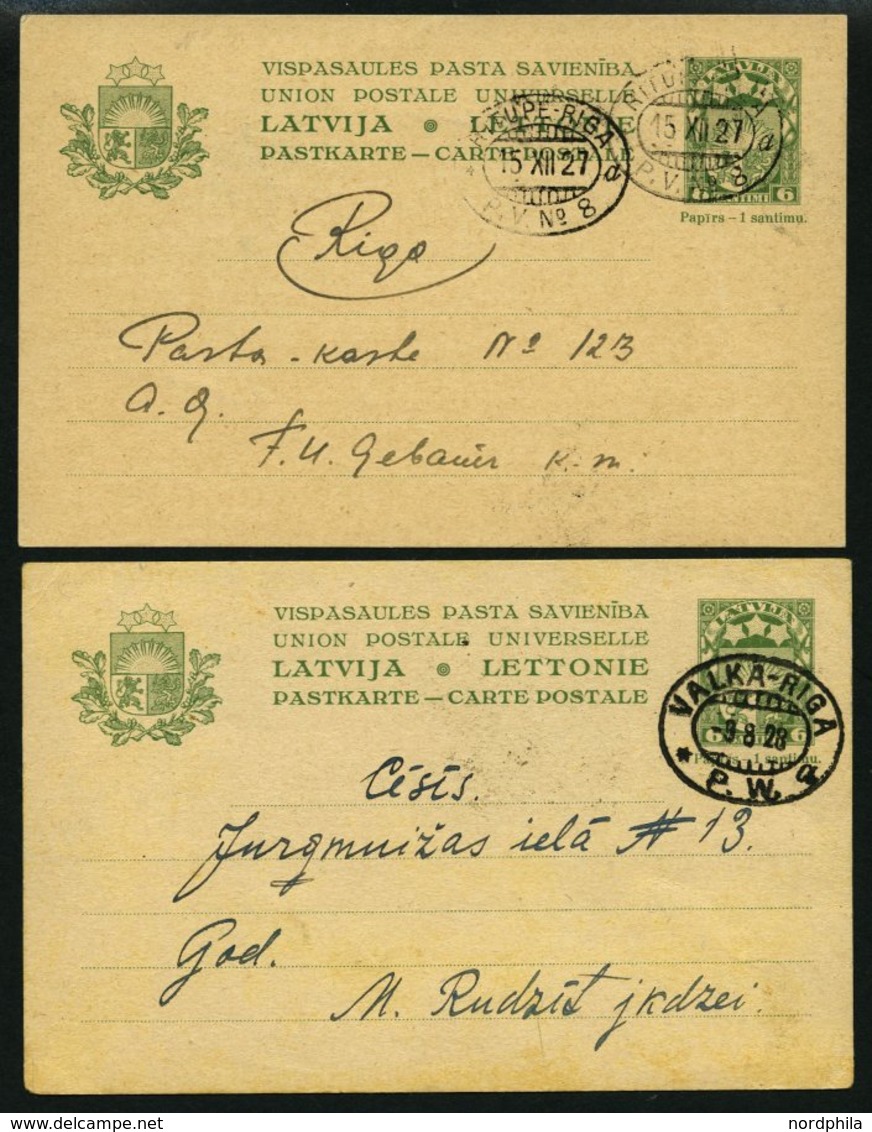 VISPASAULES PASTA SAVIENĪBA
UNION POSTALE UNIVERSELLE
LATVIJA • LETTONIE
PASTKARTE — CARTE POSTALE
LATVIJA
6 SANTIMI 6
Papīrs – 1 santimu.
RITUPE-RIGA
15 XII 27
P.V. № 8 d
RITUPE-RIGA
15 XII 27
P.V. № 8 d
Rigā
Pasta-kaste № 123
a. g.
F. U. Gebauer k-m.
VISPASAULES PASTA SAVIENĪBA
UNION POSTALE UNIVERSELLE
LATVIJA • LETTONIE
PASTKARTE — CARTE POSTALE
LATVIJA
6 SANTIMI 6
Papīrs – 1 santimu.
VALKA-RIGA
-9 8 28
* P. W. a
Cēsīs.
Jurgmuižas ielā № 13.
God.
M. Rudzīt jkdzei
nordphila